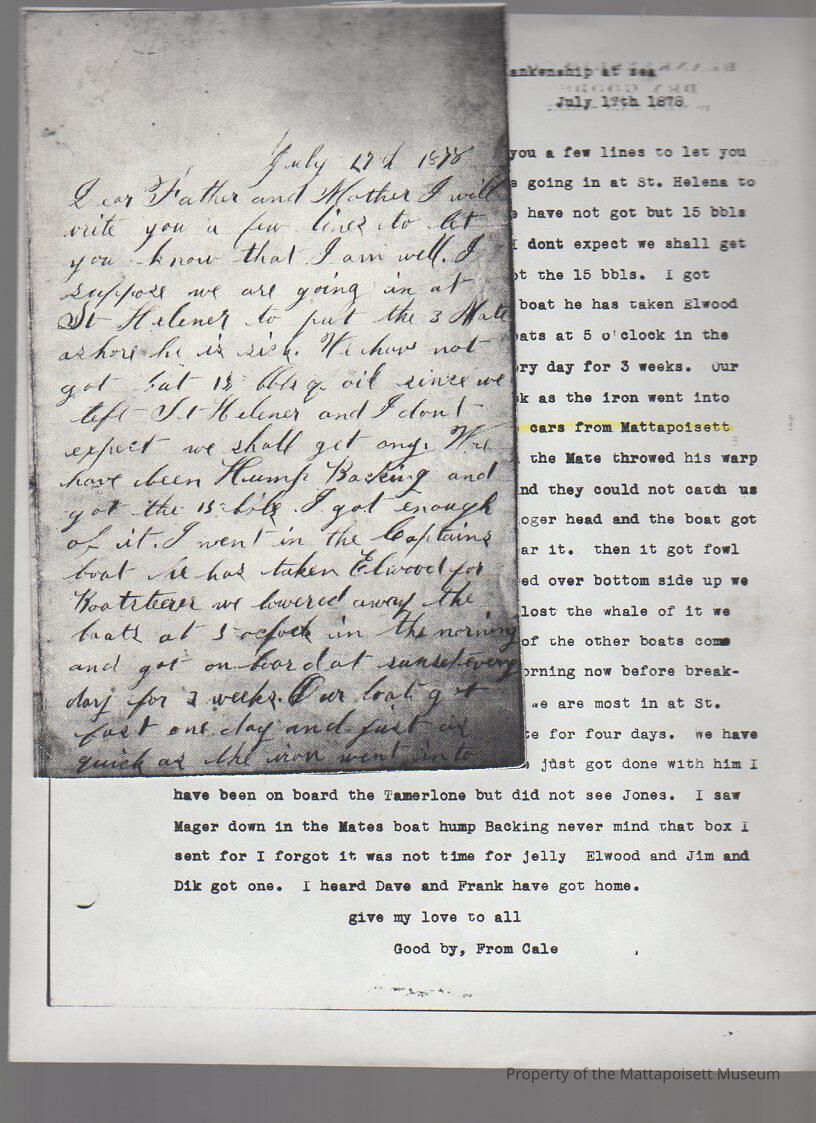 July 17th 1878
Dear Father and Mother I will
write you a few lines to let
you know that I am well. I
suppose we are going in at
St Helener to put the 3 Mate
ashore he is sick. We have not
got but 15 bbls of oil since we
left St Helener and I dont
expect we shall get any. We
have been Hump Backing and
got the 15 bbls. I got enough
of it. I went in the Captains
boat he has taken Elwood for
Boatsteerer we lowered away the
boats at 5 oclock in the morning
and got on board at sunset every
day for 3 weeks. Our boat got
fast one day and just as
quick as the iron went into
ankenship at sea
July 17th 1878
you a few lines to let you
e going in at St. Helena to
e have not got but 15 bbls
I dont expect we shall get
ot the 15 bbls. I got
boat he has taken Elwood
oats at 5 o'clock in the
ry day for 3 weeks. Our
k as the iron went into
cars from Mattapoisett
the Mate throwed his warp
nd they could not catch us
oger head and the boat got
ar it. then it got fowl
ed over bottom side up we
lost the whale of it we
of the other boats come
orning now before break-
we are most in at St.
te for four days. we have
just got done with him I
have been on board the Tamerlone but did not see Jones. I saw
Mager down in the Mates boat hump Backing never mind that box I
sent for I forgot it was not time for jelly Elwood and Jim and
Dik got one. I heard Dave and Frank have got home.
give my love to all
Good by, From Cale
Property of the Mattapoisett Museum